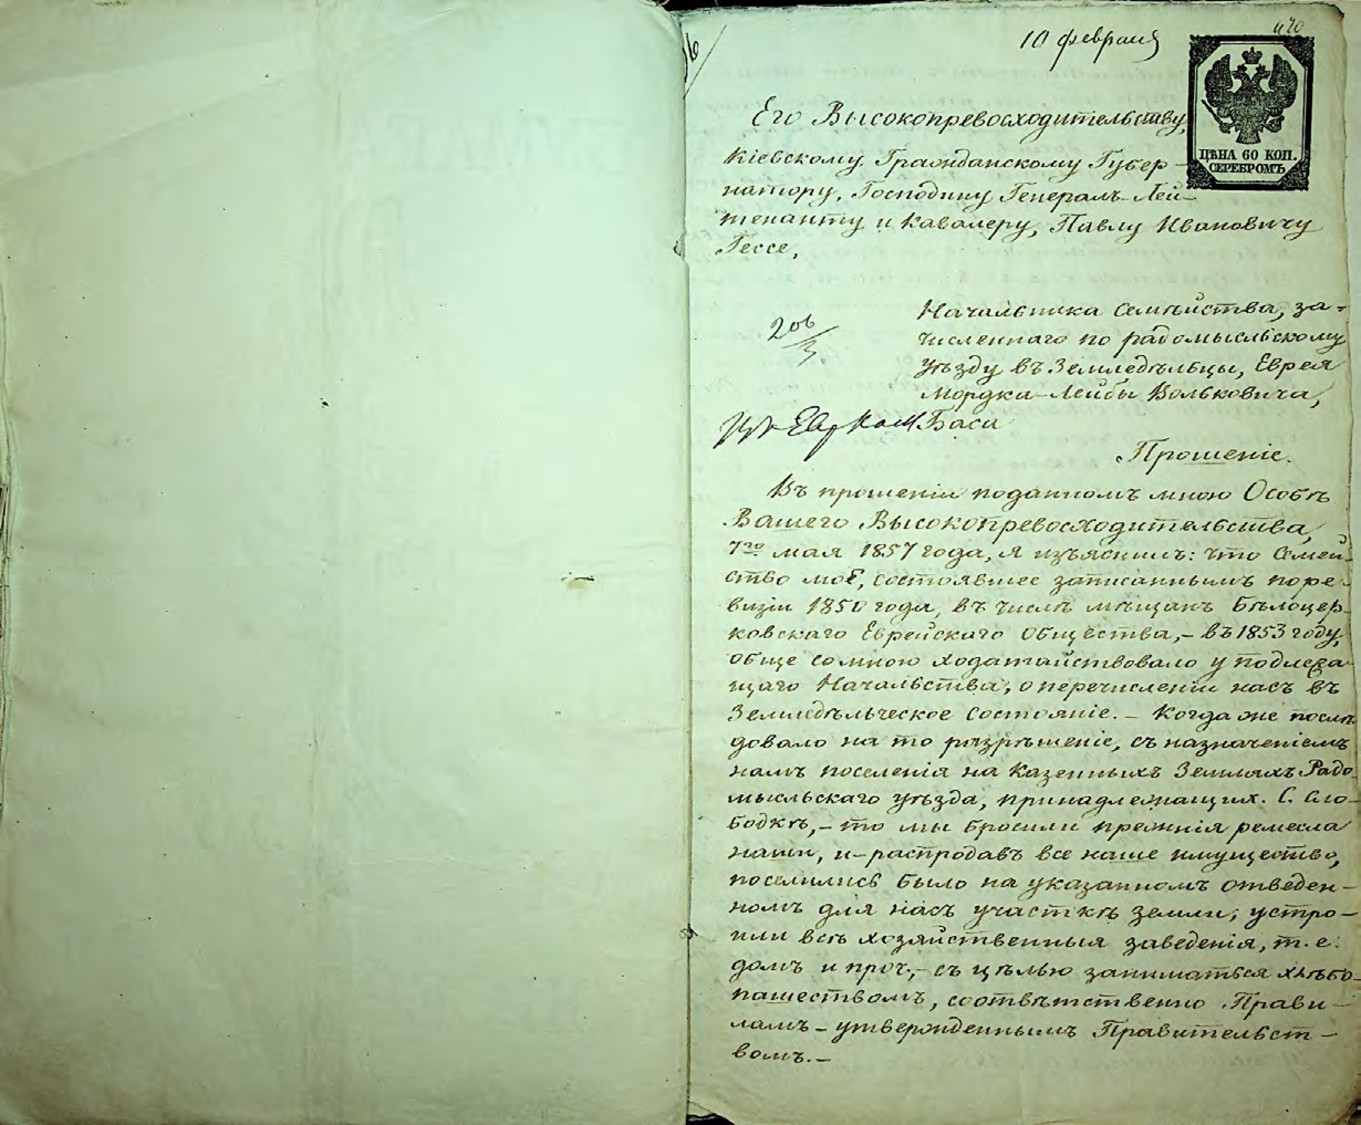 10 февраля
470
ЦѢНА 60 КОП.
СЕРЕБРОМЪ
Его Высокопревосходительству,
Кіевскому Гражданскому Губер-
натору, Господину Генералъ-Лей-
тенанту и Кавалеру, Павлу Ивановичу
Гессе,
Начальника Семѣйства, за-
численнаго по радомысльскому
уѣзду въ Земледѣльцы, Еврея
Мордка-Лейбы Вольковича,
Баси
206/3
Прошеніе.
Въ прошеніи поданномъ мною Особѣ
Вашего Высокопревосходительства,
7го мая 1857 года, я изъяснилъ: что Семей-
ство моё, состоявшее записаннымъ по ре-
визіи 1850 года, въ числѣ мѣщанъ Бѣлоцер-
ковскаго Еврейскаго Общества, – въ 1853 году,
обще со мною ходатайствовало у подлежа-
щаго Начальства, о перечисленіи насъ въ
Земледѣльческое состояніе. – Когда же послѣ-
довало на то разрѣшеніе, съ назначеніемъ
намъ поселенія на Казенныхъ Земляхъ Радо-
мысльскаго уѣзда, принадлежащих. С. Сло-
бодкѣ, – то мы бросили прежнія ремесла
наши, и – распродавъ все наше имущество,
поселились было на указанномъ отведен-
номъ для насъ участкѣ земли; устро-
или всѣ хозяйственныя заведенія, т. е.
домъ и проч., – съ цѣлью заниматься хлѣбо-
пашествомъ, соотвѣтственно Прави-
ламъ – утвержденнымъ Правительст-
вомъ. –